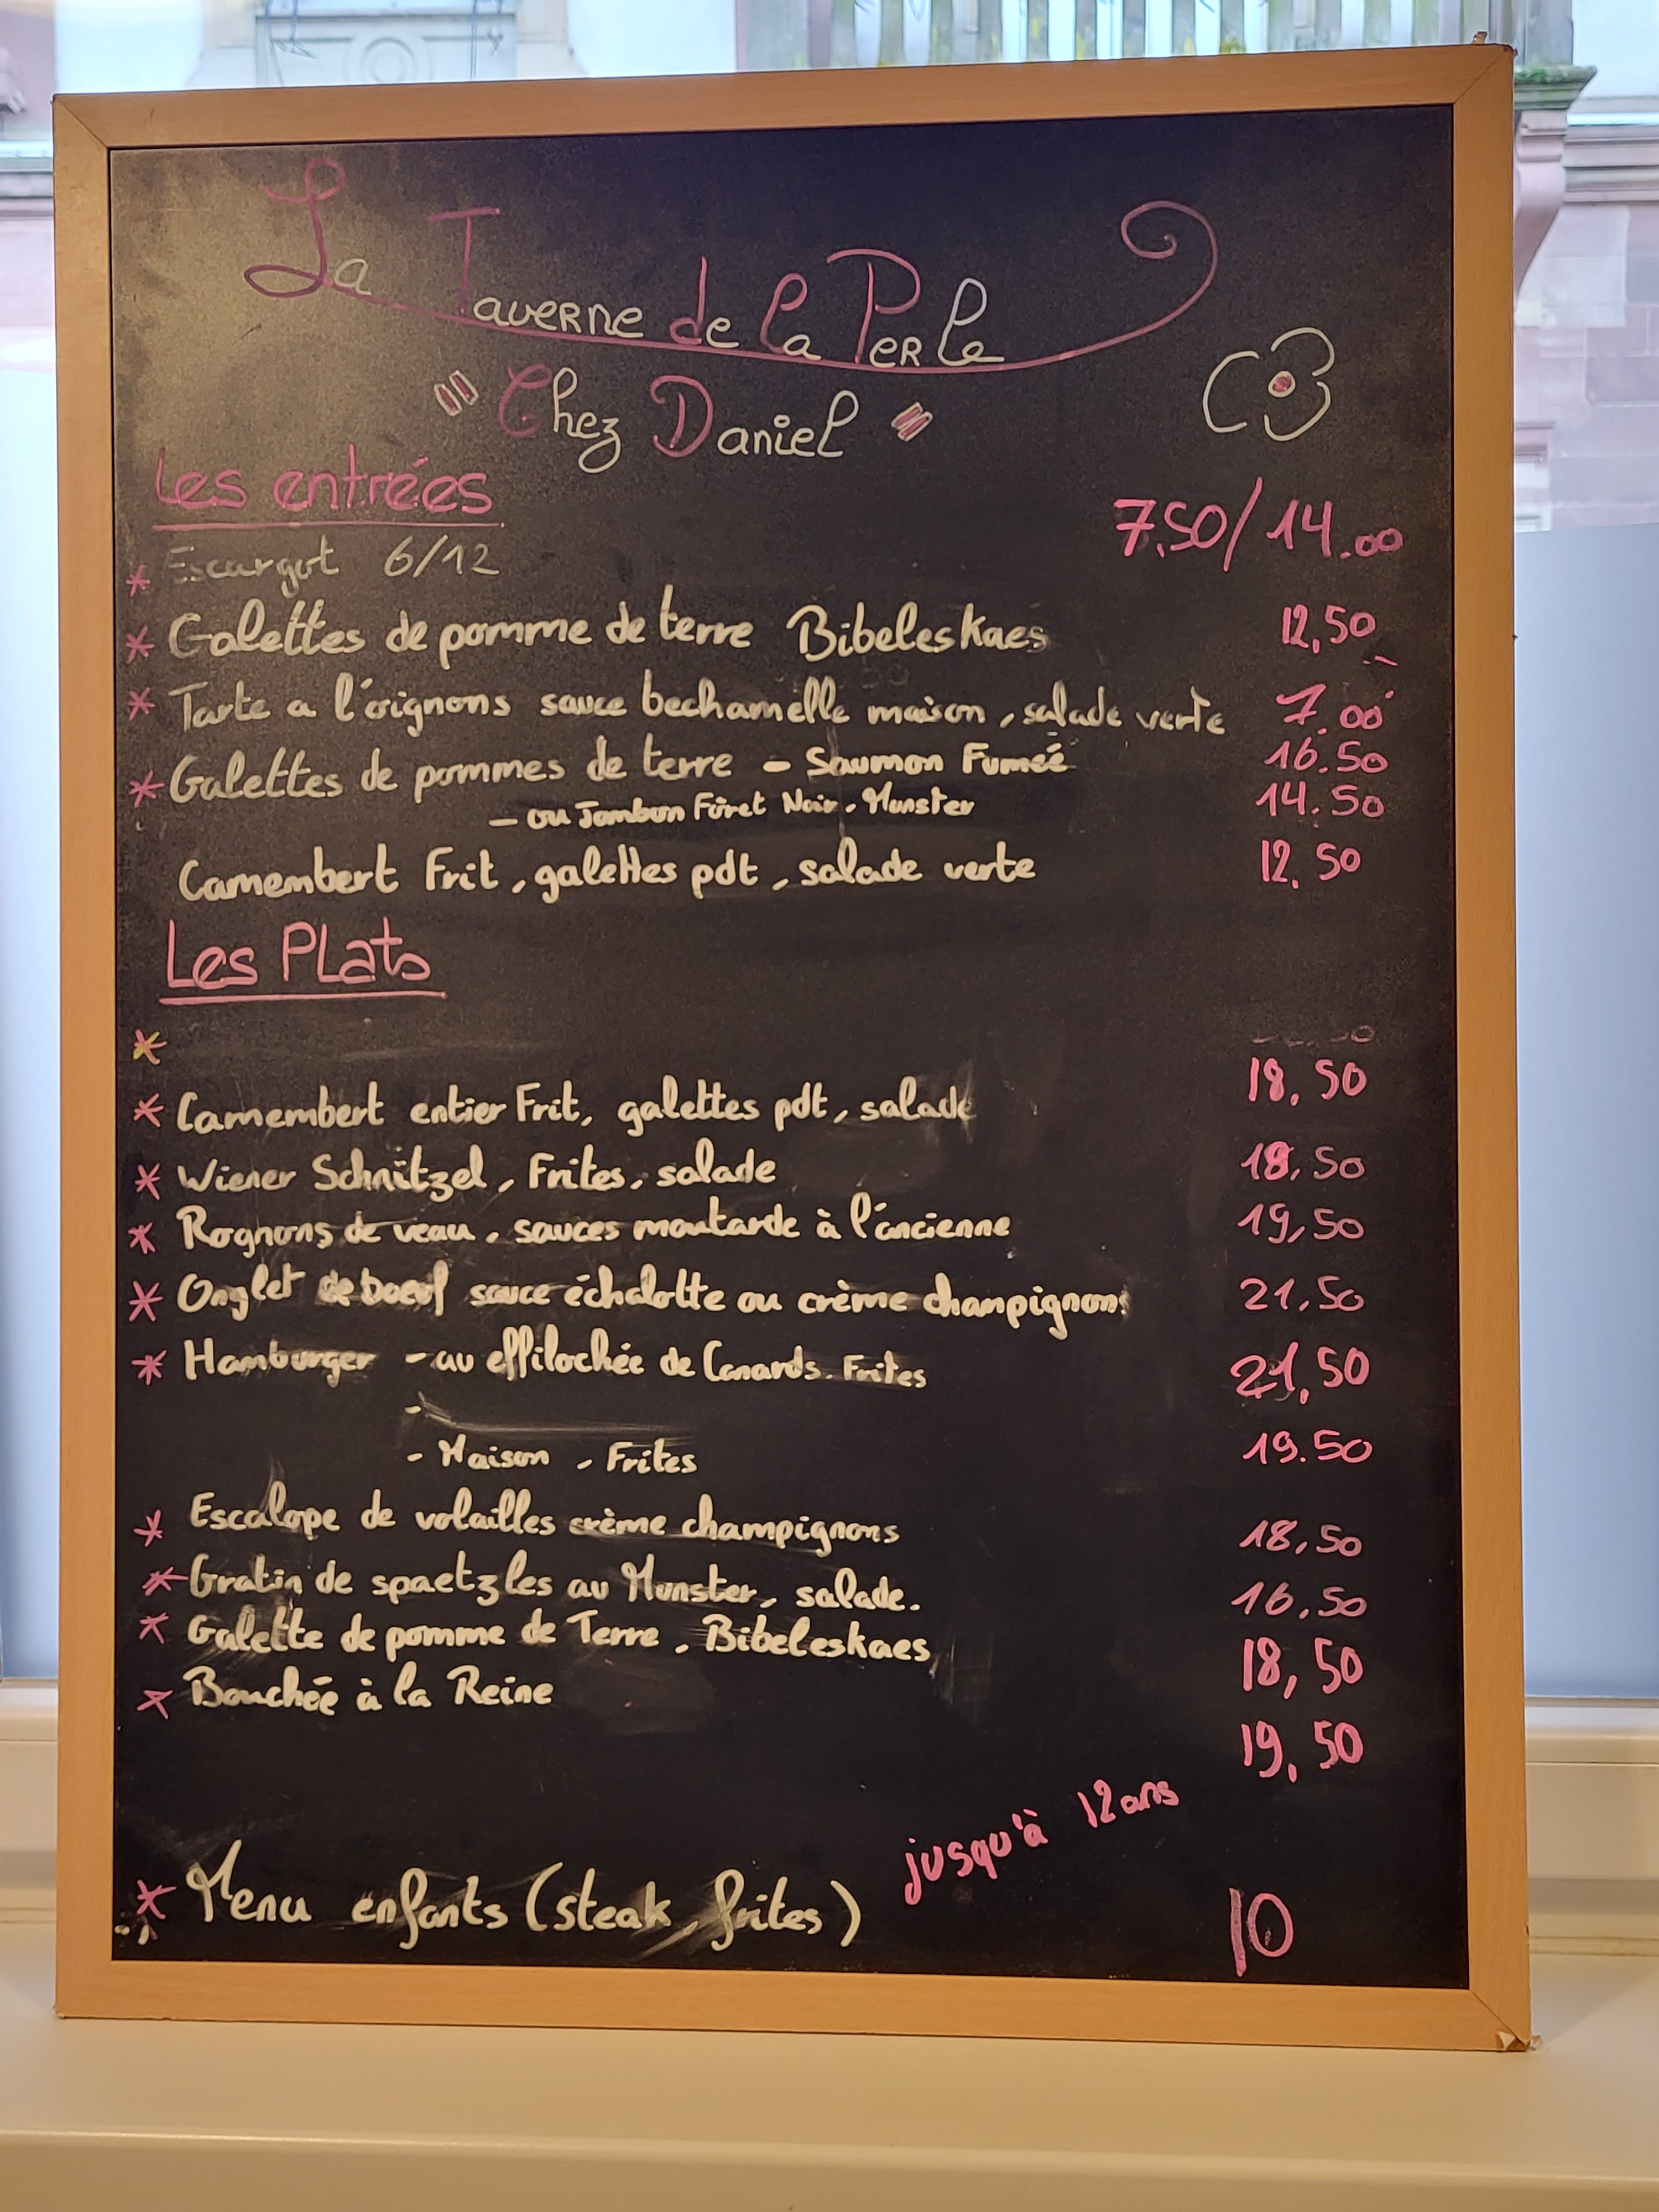 La Taverne de la Perle
"Chez Daniel"
Les entrées
* Escargot 6/12 7.50/14.00
* Galettes de pomme de terre Bibeleskaes 12,50
* Tarte a l'oignons sauce bechamelle maison, salade verte 7.00
* Galettes de pommes de terre - Saumon Fumée 16.50
- ou Jambon Foret Noir, Munster 14.50
Camembert Frit, galettes pdt, salade verte 12,50
Les Plats
*
* Camembert entier Frit, galettes pdt, salade 18,50
* Wiener Schnitzel, Frites, salade 18,50
* Rognons de veau, sauces moutarde à l'ancienne 19,50
* Onglet de boeuf sauce échalotte ou crème champignons 21,50
* Hamburger - au effilochée de Canards. Frites 21,50
-
- Maison, Frites 19.50
* Escalope de volailles crème champignons 18,50
* Gratin de spaetzles au Munster, salade. 16,50
* Galette de pomme de Terre, Bibeleskaes 18,50
* Bouchée à la Reine 19,50
jusqu'à 12 ans
* Menu enfants (steak, frites) 10